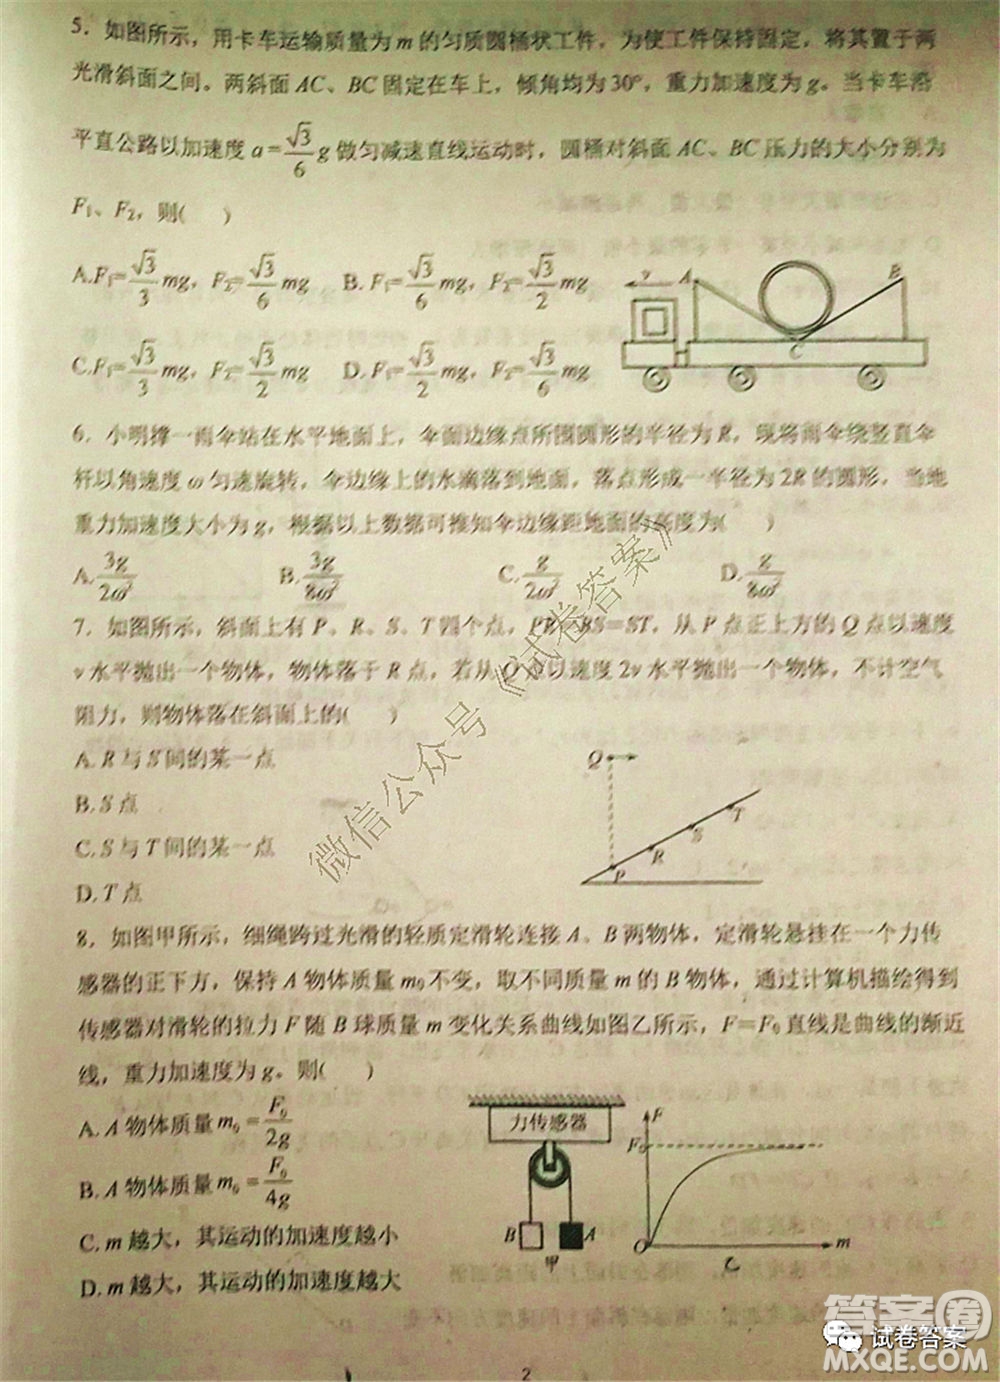 5．如图所示，用卡车运输质量为m的匀质圆桶状工件，为使工件保持固定，将其置于两
光滑斜面之间。两斜面AC、BC固定在车上，倾角均为30°，重力加速度为g。当卡车沿
平直公路以加速度a=√3/6 g做匀减速直线运动时，圆桶对斜面AC、BC压力的大小分别为
F₁、F₂，则(　　)
A.F₁=√3/3 mg，F₂=√3/6 mg　B. F₁=√3/6 mg，F₂=√3/2 mg
C.F₁=√3/3 mg，F₂=√3/2 mg　D. F₁=√3/2 mg，F₂=√3/6 mg
v A B C
6．小明撑一雨伞站在水平地面上，伞面边缘点所围圆形的半径为R，现将雨伞绕竖直伞
杆以角速度ω匀速旋转，伞边缘上的水滴落到地面，落点形成一半径为2R的圆形，当地
重力加速度大小为g，根据以上数据可推知伞边缘距地面的高度为(　　)
A.3g/2ω²　B.3g/8ω²　C.g/2ω²　D.g/8ω²
7．如图所示，斜面上有P、R、S、T四个点，PR=RS=ST，从P点正上方的Q点以速度
v水平抛出一个物体，物体落于R点，若从Q点以速度2v水平抛出一个物体，不计空气
阻力，则物体落在斜面上的(　　)
A.R与S间的某一点
B.S点
C.S与T间的某一点
D.T点
Q P R S T
8．如图甲所示，细绳跨过光滑的轻质定滑轮连接A、B两物体，定滑轮悬挂在一个力传
感器的正下方，保持A物体质量m₀不变，取不同质量m的B物体，通过计算机描绘得到
传感器对滑轮的拉力F随B球质量m变化关系曲线如图乙所示，F=F₀直线是曲线的渐近
线，重力加速度为g。则(　　)
A.A物体质量m₀=F₀/2g
B.A物体质量m₀=F₀/4g
C.m越大，其运动的加速度越小
D.m越大，其运动的加速度越大
力传感器
B A
甲
F
F₀
O m
2
微信公众号《试卷答案》
试卷答案
答案圈
MXQE.COM